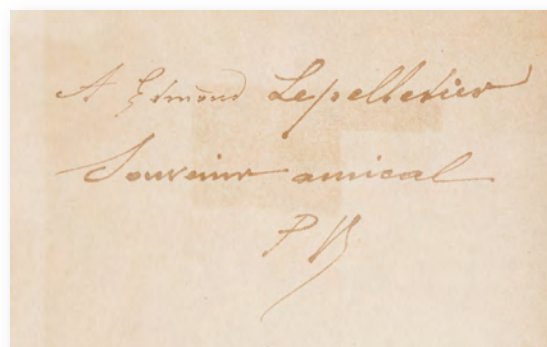 A Edmond Lepelletier
Souvenir amical
P V